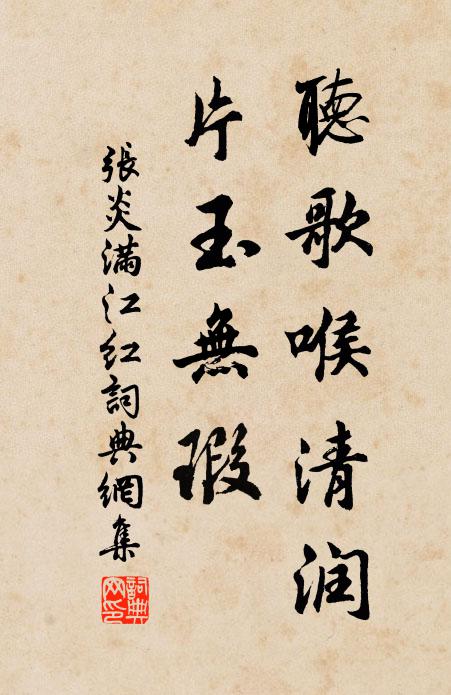 聽歌喉清润
片玉無瑕
張炎满江红詞典網集
詞典网印